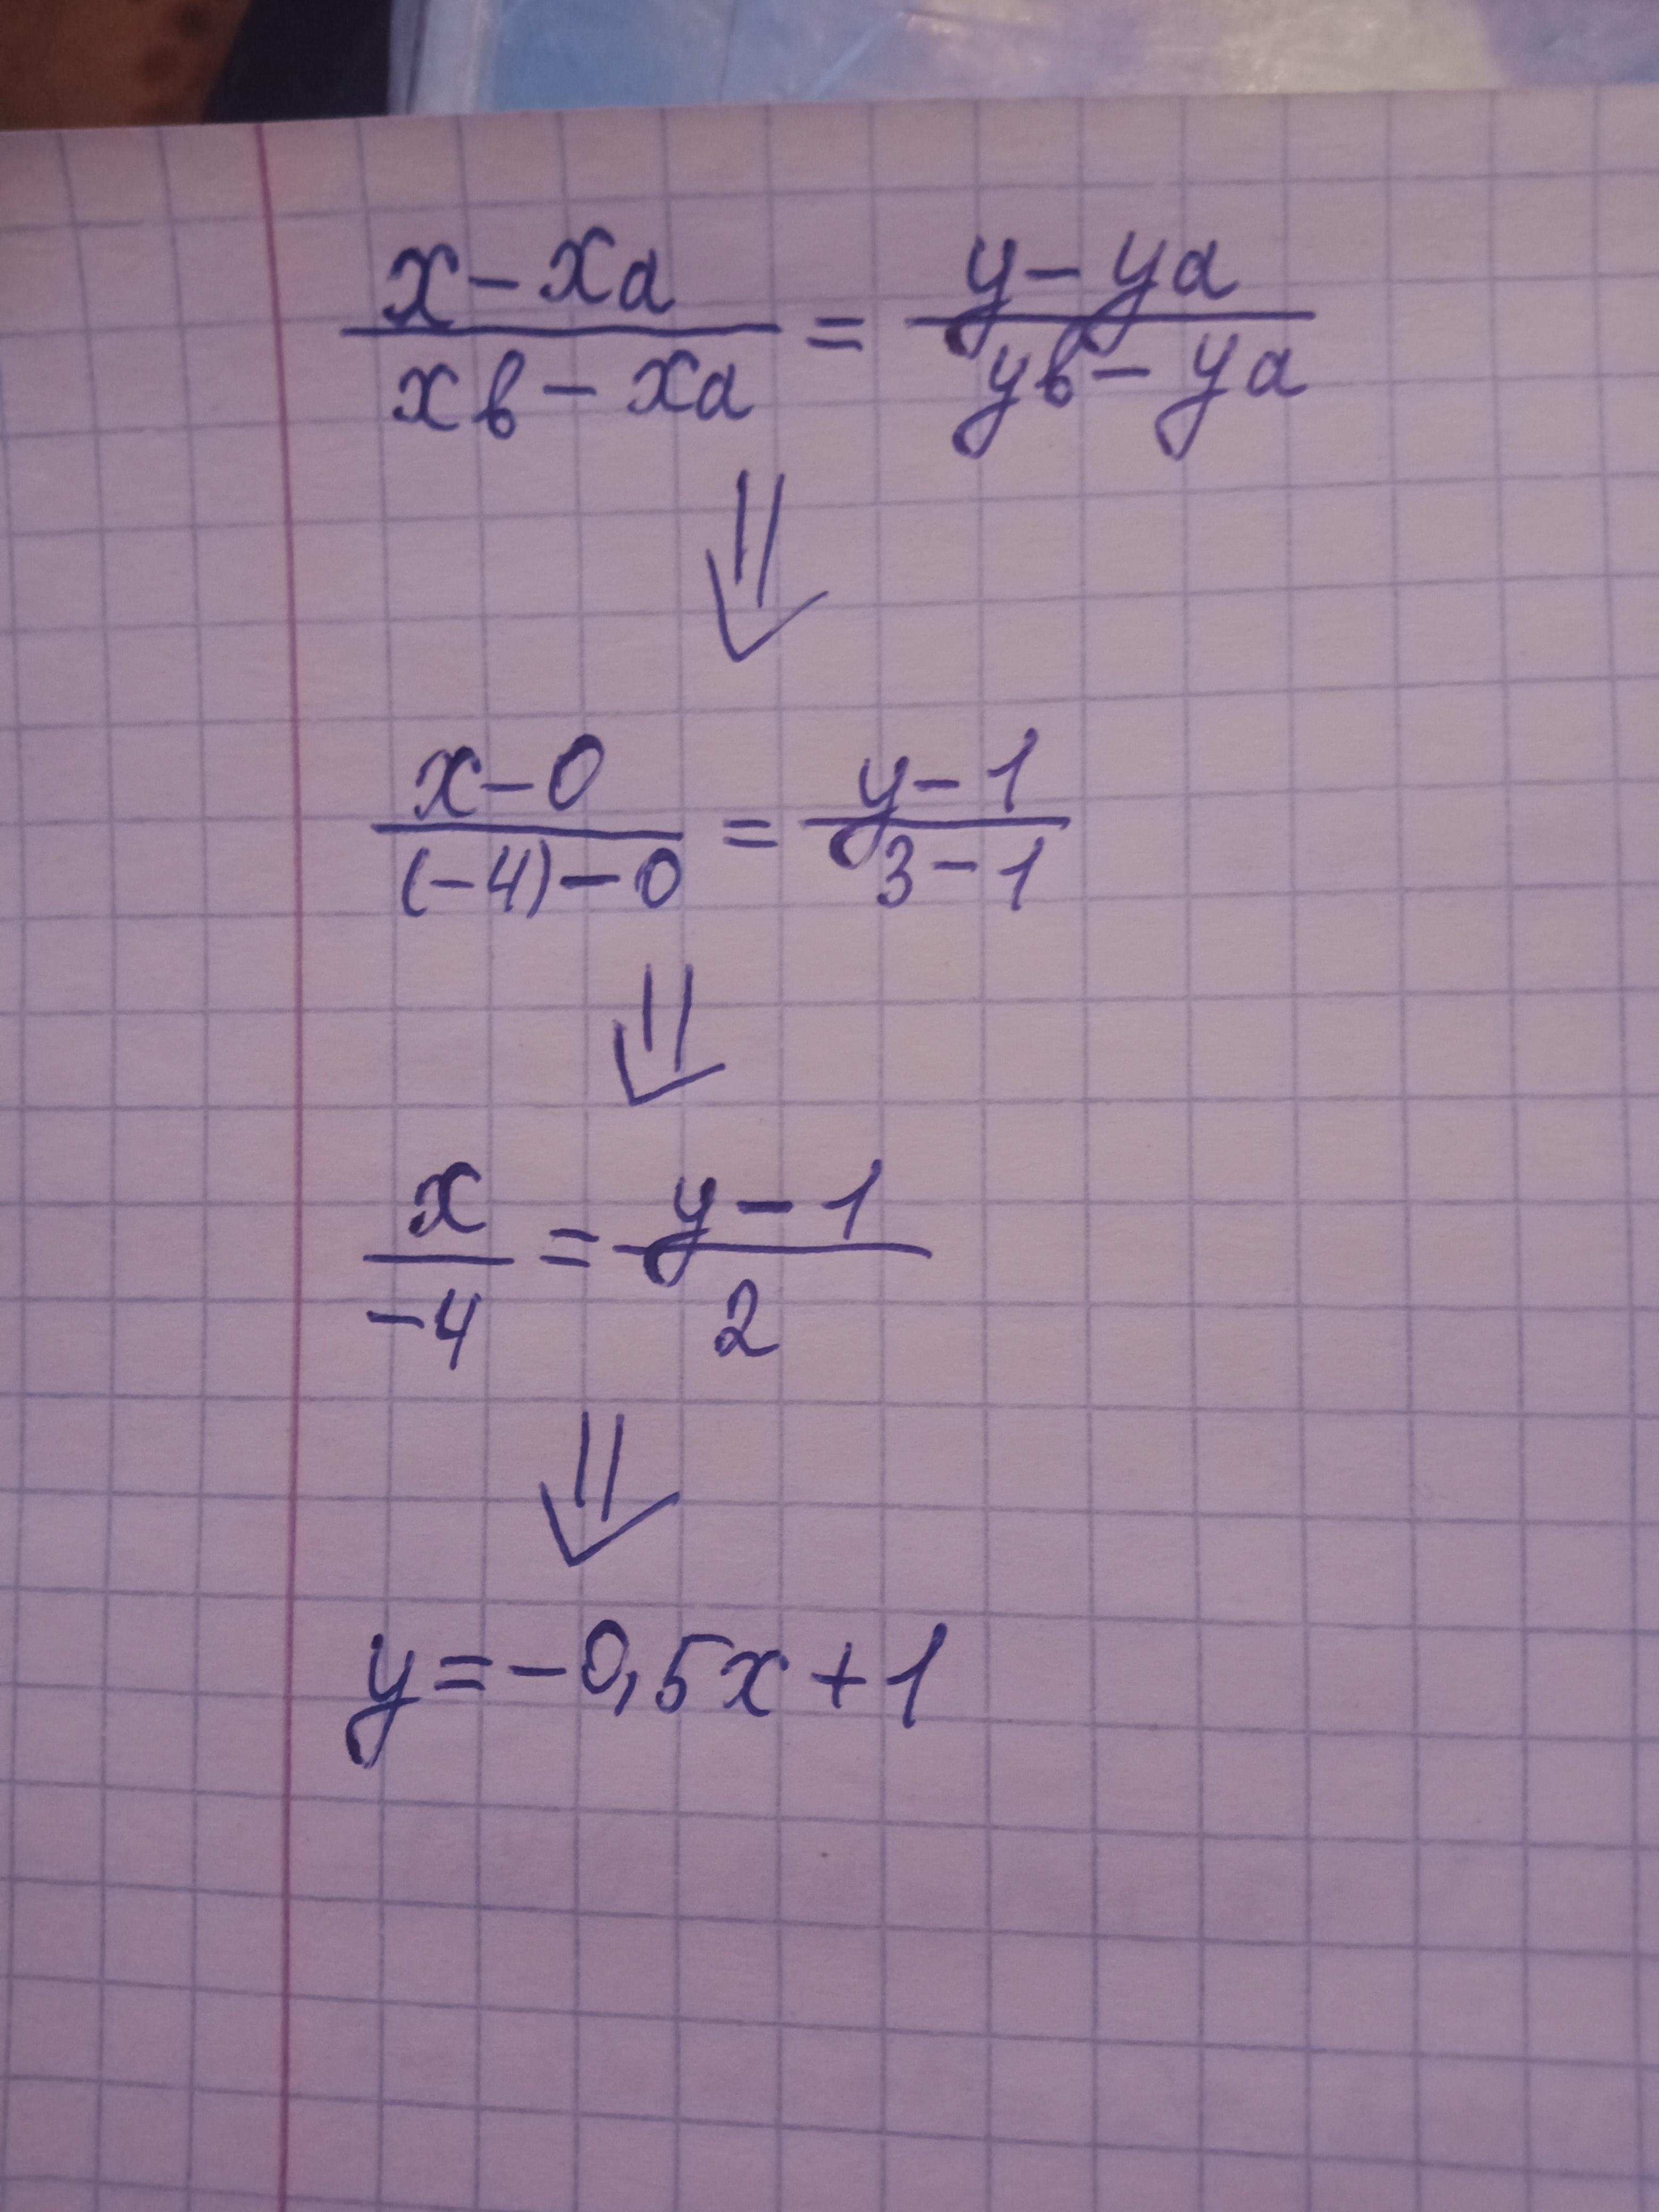 x - xa / xв - xa = y - ya / yв - ya
⇓
x - 0 / (-4) - 0 = y - 1 / 3 - 1
⇓
x / -4 = y - 1 / 2
⇓
y = -0,5x + 1